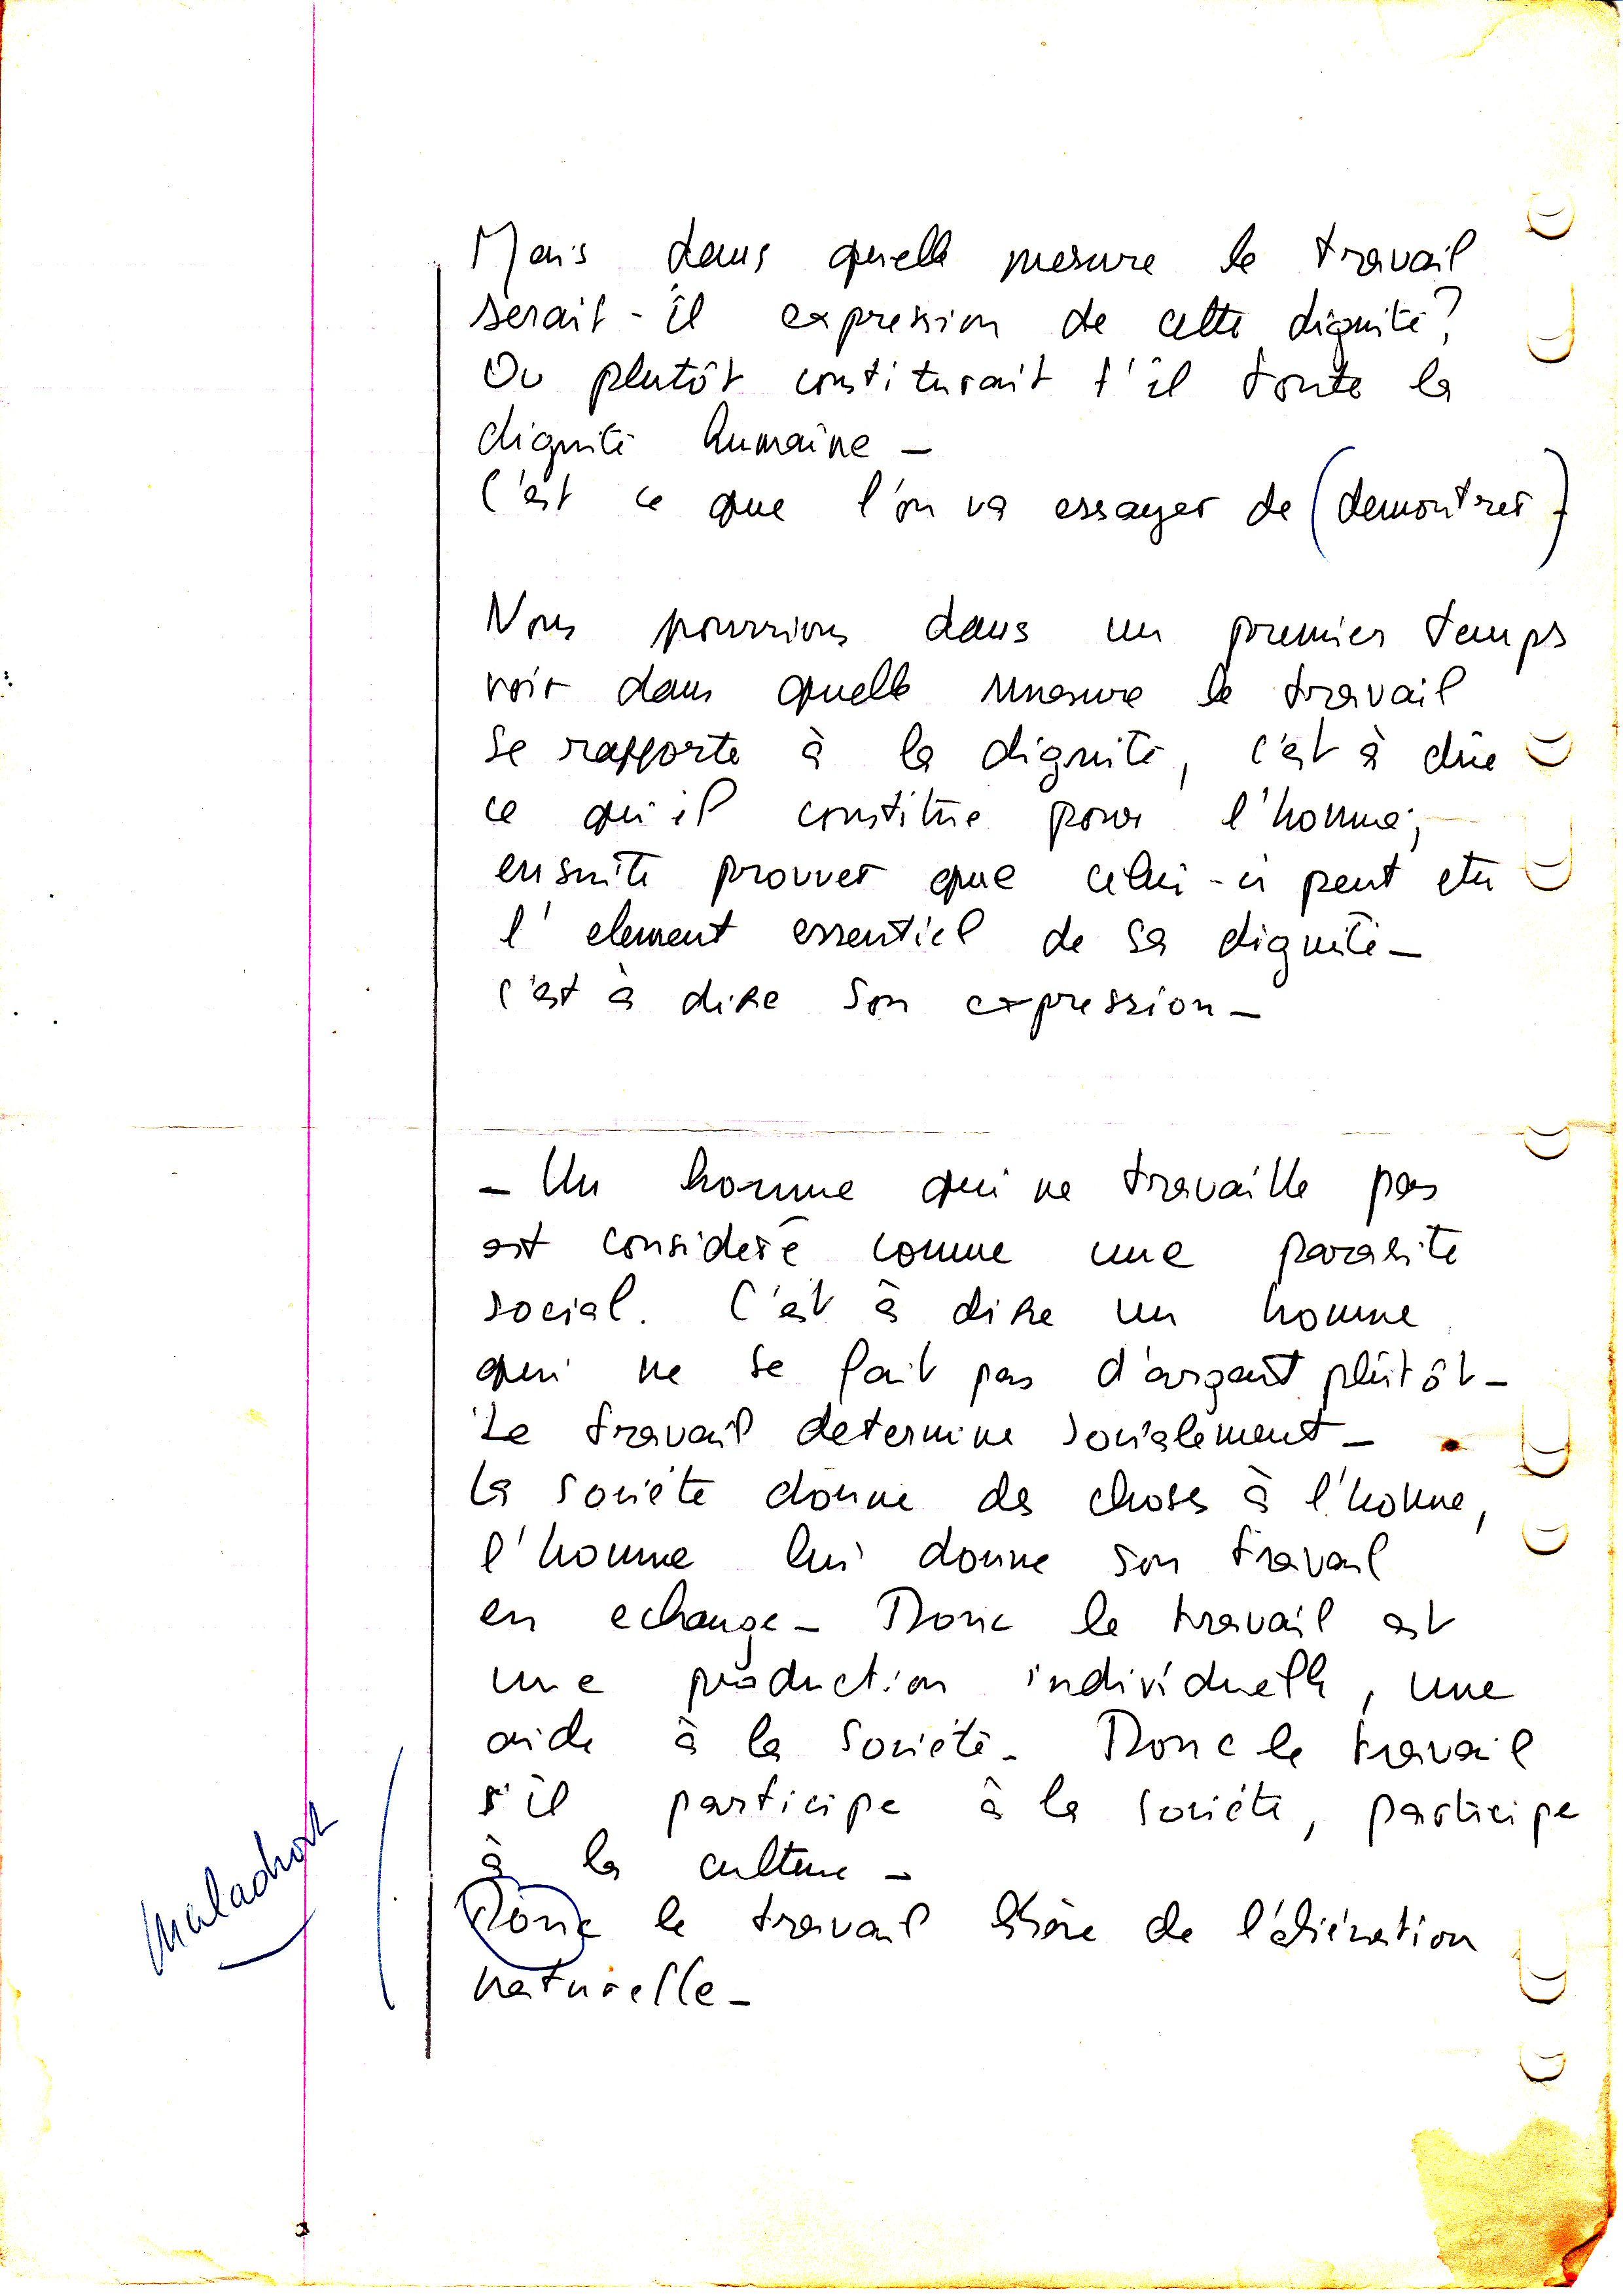 Mais dans quelle mesure le travail
serait-il expression de cette dignité?
Ou plutôt constiturait t'il toute la
dignité humaine -
C'est ce que l'on va essayer de (demontrer -)
Nous pourrions dans un premier temps
voir dans quelle mesure le travail
se rapporte à la dignité, c'est à dire
ce qu'il constitue pour l'homme;
ensuite prouver que celui-ci peut etre
l'element essentiel de sa dignité -
c'est à dire son expression -
- Un homme qui ne travaille pas
est consideré comme une parasite
social. C'est à dire un homme
qui ne se fait pas d'argent plutôt -
Le travail determine socialement -
La société donne des choses à l'homme,
l'homme lui donne son travail
en echange - Donc le travail est
une production individuelle, une
aide à la société - Donc le travail
s'il participe à la société, participe
à la culture -
Donc le travail libère de l'aliénation
naturelle -
maladroit